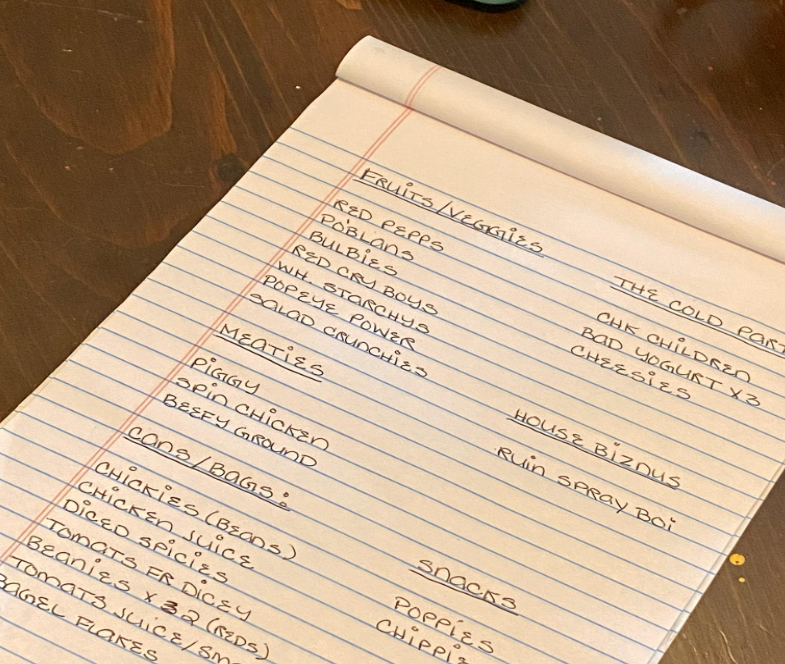 FRUITS/VEGGIES
RED PEPPS
POBLANS
BULBIES
RED CRY BOYS
WH. STARCHYS
POPEYE POWER
SALAD CRUNCHIES
MEATIES
PIGGY
SPIN CHICKEN
BEEFY GROUND
CANS/BAGS:
CHICKIES (BEANS)
CHICKEN JUICE
DICED SPICIES
TOMATS FR DICEY
BEANIES X 2 (REDS)
TOMATS JUICE/SM
BAGEL FLAKES
THE COLD PART
CHK CHILDREN
BAD YOGURT X3
CHEESIES
HOUSE BIZNUS
RUIN SPRAY BOI
SNACKS
POPPIES
CHIPPIE